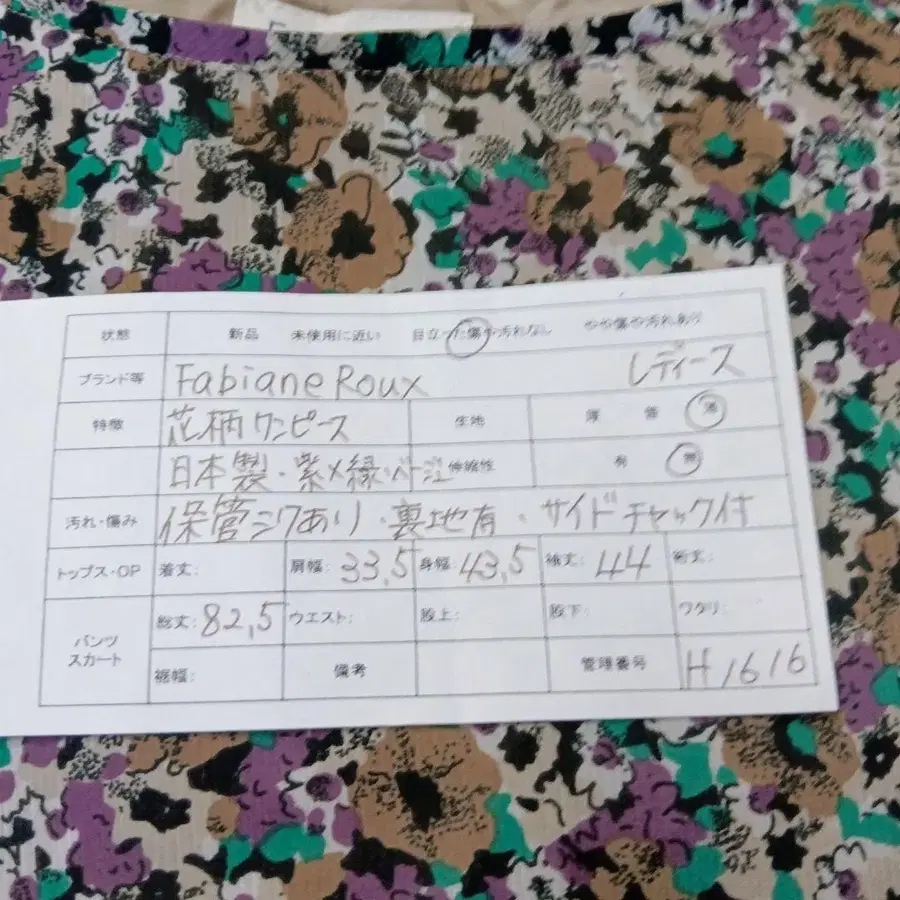 状態 新品 未使用に近い 目立った傷や汚れなし やや傷や汚れあり
ブランド等 Fabiane Roux レディース
特徴 花柄ワンピース 生地 薄 普
日本製・紫×緑・ベージュ 伸縮性 有 無
汚れ・傷み 保管シワあり・裏地有・サイドチャック付
トップス・OP 着丈: 肩幅: 33,5 身幅: 43,5 袖丈: 44 裄丈:
パンツ スカート 総丈: 82,5 ウエスト: 股上: 股下: ワタリ:
裾幅: 備考 管理番号 H1616